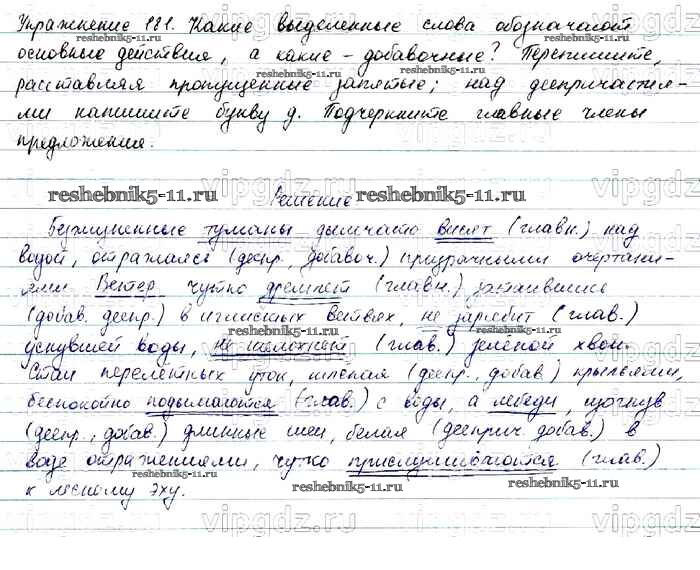 Упражнение 181. Какие выделенные слова обозначают
основные действия, а какие - добавочные? Перепишите,
расставляя пропущенные запятые; над деепричастия-
ми напишите букву д. Подчеркните главные члены
предложения.
reshebnik5-11.ru Решение reshebnik5-11.ru
туманы дымчато висят (главн.) над
водой, отражаясь (деепр., добавоч.) призрачными очертани-
ями. Ветер чутко дремлет (главн.) затаившись
(добав. деепр.) в иглистых ветвях, не зарябит (глав.)
уснувшей воды, не шелохнет (глав.) зелёной хвои.
Стаи перелетных уток, шлепая (деепр., добав.) крыльями,
беспокойно подымаются (глав.) с воды, а лебеди, изогнув
(деепр., добав.) длинные шеи, белая (дееприч. добав.) в
воде отражениями, чутко прислушиваются (глав.)
к лесному эху.
reshebnik5-11.ru reshebnik5-11.ru